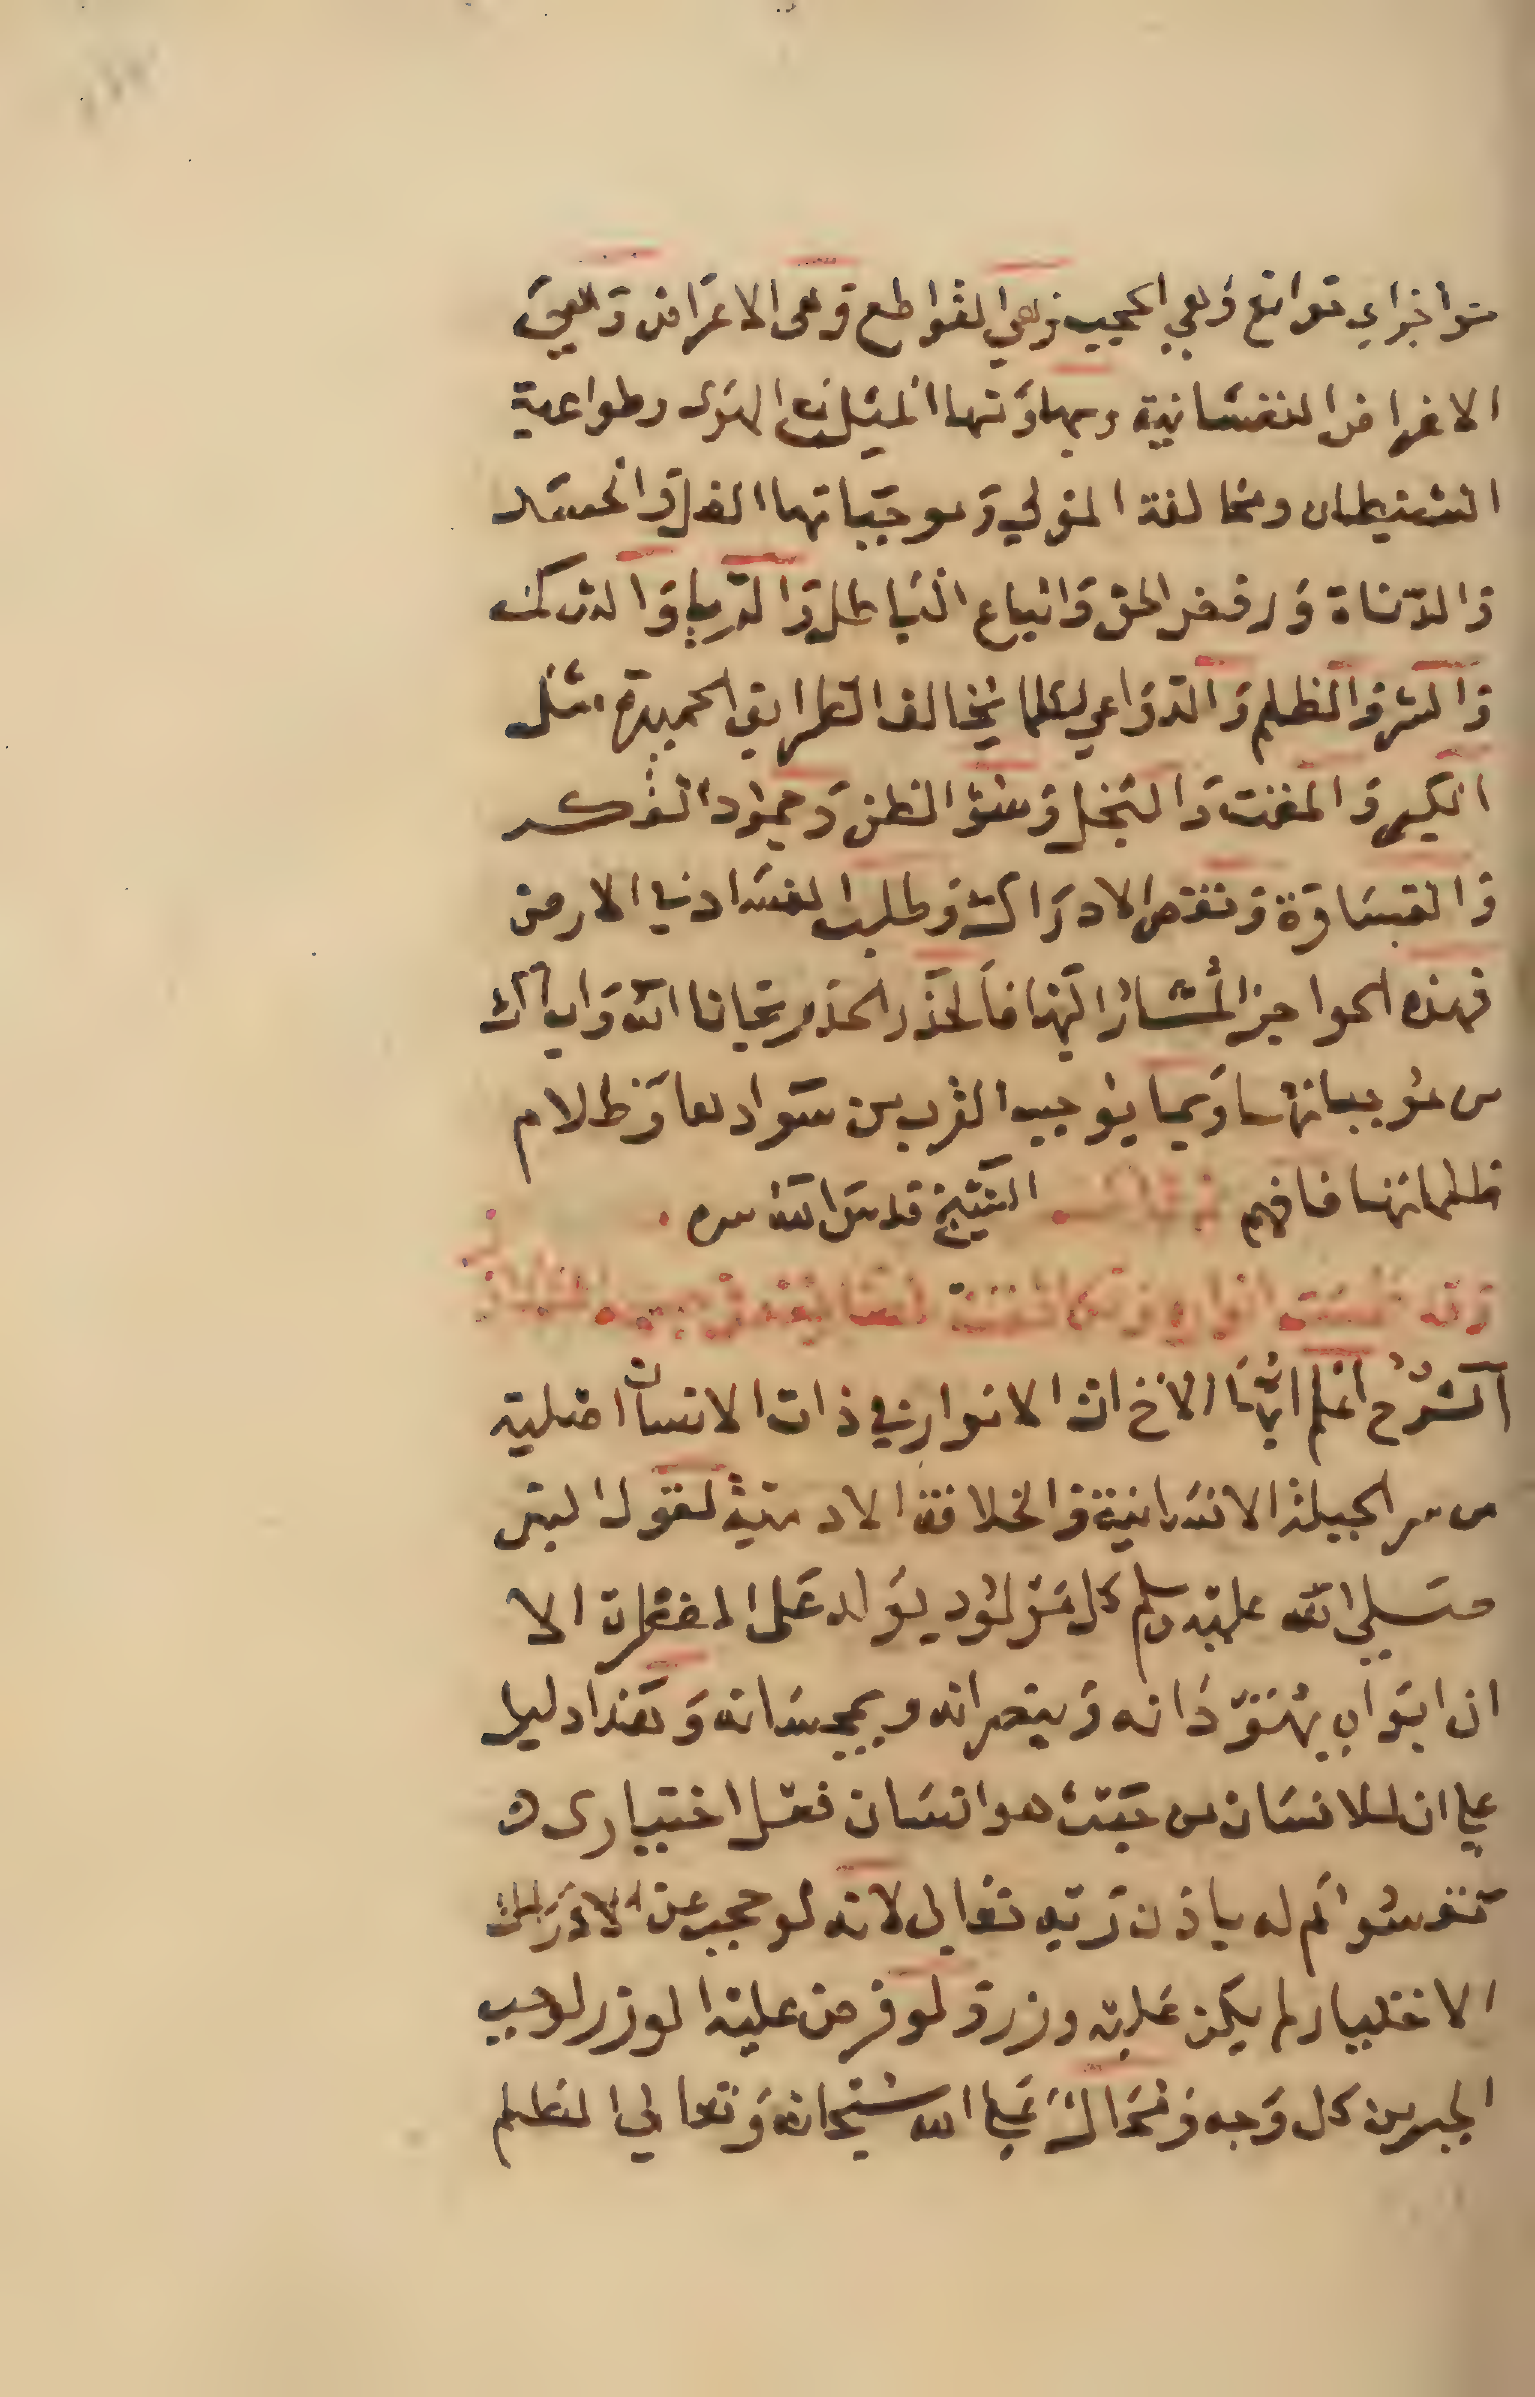 حواجزاي موانع وهي الحجب وهي القواطع وهى الاعراض وهي
الاغراض النفسانية ومهاوتها الميل مع الهوى وطواعية
الشيطان ومخالفة المولي وموجباتها الغل والحسد
والدناة ورفض الحق واتباع الباطل والريا والشرك
والشر والظلم والدواعي لكلما يخالف الطرايق الحميدة مثل
الكبر والمقت والبخل وسوّ الظن وجمود الفكر
والقساوة ونقص الادراك وطلب الفساد في الارض
فهذه الحواجز المشار اليها فالحذر الحذر نجانا الله واياك
من موجباتها ومما يوجب القرب من سوادها وظلام
ظلماتها فافهم الشيخ قدس الله سره
وقد
الشرح اعلم ايها الاخ ان الانوار في ذات الانسان اصلية
من سر الجبلة الانسانية والخلافة الادمية لقول النبي
صلي الله عليه وسلم كل مولود يولد على الفطرة الا
ان ابواه يهودانه وينصرانه ويمجسانه وهذا دليل
علي ان للانسان من حيث هو انسان فعل اختيارى
له باذن ربه تعالي لانه لو حجب عن الادراك
الاختيار لم يكن عليه وزر ولو فرض عليه الوزر لوجب
الجبر من كل وجه ومحال علي الله سبحانه وتعالي الظلم